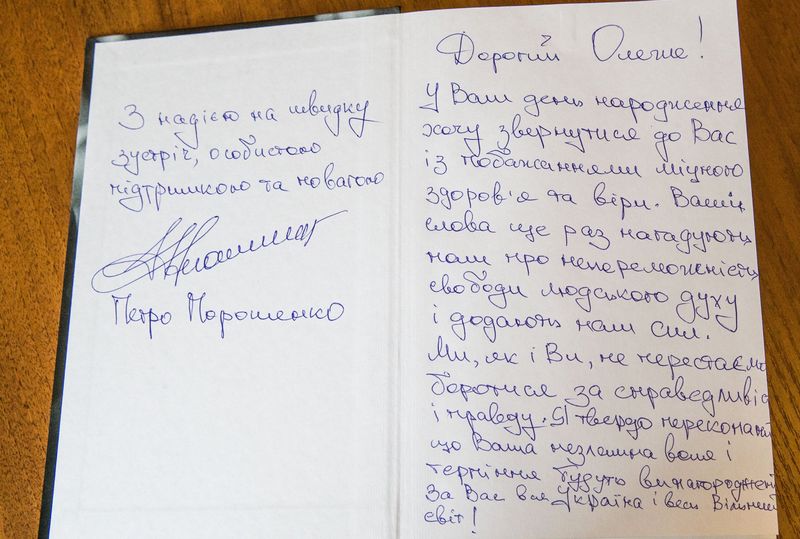 Дорогий Олеже!
У Ваш день народження
хочу звернутися до Вас
із побажаннями міцного
здоров'я та віри. Ваші
слова ще раз нагадують
нам про непереможність
свободи людського духу
і додають нам сил.
Ми, як і Ви, не перестаємо
боротися за справедливіс
і правду. Я твердо переконаний
що Ваша незламна воля і
терпіння будуть винагороджені
За Вас вся Україна і весь Вільний
світ!
З надією на швидку
зустріч, особистою
підтримкою та повагою
Петро Порошенко